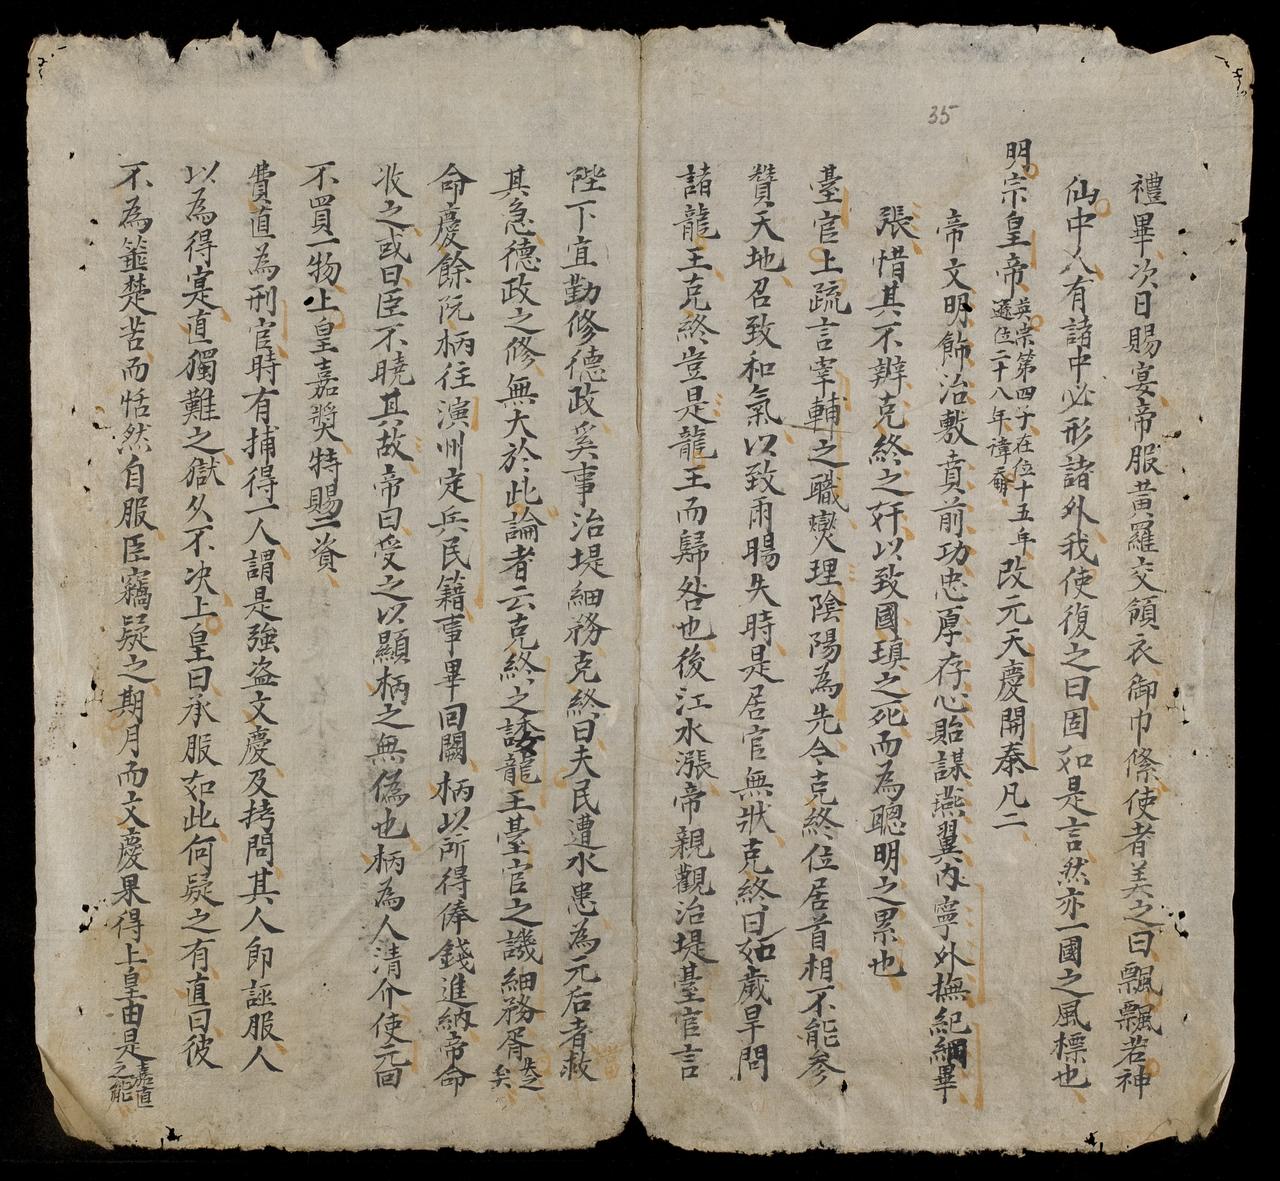 35
禮畢次日賜宴帝服黃羅交領衣御巾絛使者美之曰飄飄若神
仙中人有諸中必形諸外我使復之曰固如是言然亦一國之風標也
明宗皇帝
英宗第四子在位十五年
遜位二十八年諱奣
改元天慶開泰凡二
帝文明飾治敷賁前功忠厚存心貽謀燕翼內寧外撫紀綱畢
張惜其不辨克終之奸以致國瑱之死而為聰明之累也
臺官上疏言宰輔之職燮理陰陽為先今克終位居首相不能參
贊天地召致和氣以致雨暘失時是居官無狀克終曰如歲旱問
諸龍王克終豈是龍王而歸咎也後江水漲帝親觀治堤臺官言
陛下宜勤修德政奚事治堤細務克終曰夫民遭水患為元后者救
其急德政之修無大於此論者云克終之諉龍王臺官之譏細務胥
失之
矣
命慶餘阮柄往演州定兵民籍事畢回闕柄以所得俸錢進納帝命
收之或曰臣不曉其故帝曰受之以顯柄之無偽也柄為人清介使元回
不買一物上皇嘉奬特賜二資
費直為刑官時有捕得一人謂是強盜文慶及拷問其人即誣服人
以為得寔直獨難之獄久不决上皇曰承服如此何疑之有直曰彼
不為箠楚苦而恬然自服臣竊疑之期月而文慶果得上皇由是
嘉直
之能